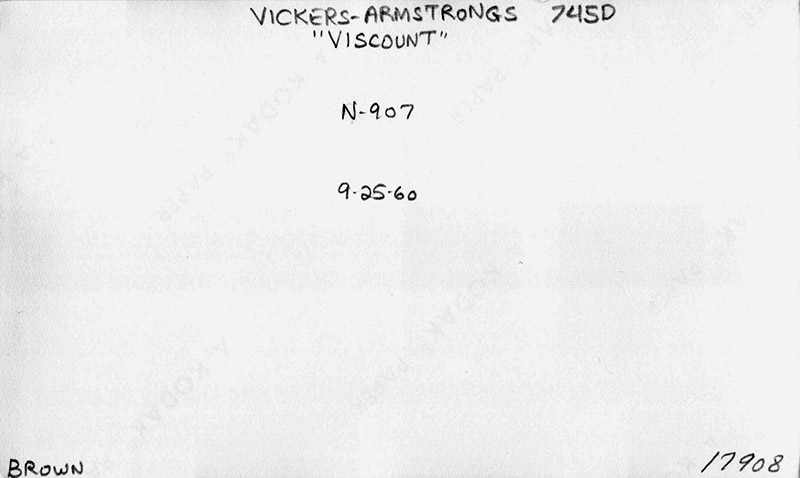 VICKERS-ARMSTRONGS 745D
"VISCOUNT"
N-907
9-25-60
BROWN
17908